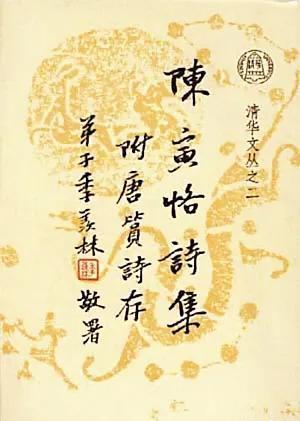 清华文丛之二
陳寅恪詩集
附唐篔詩存
弟子季羡林 敬署